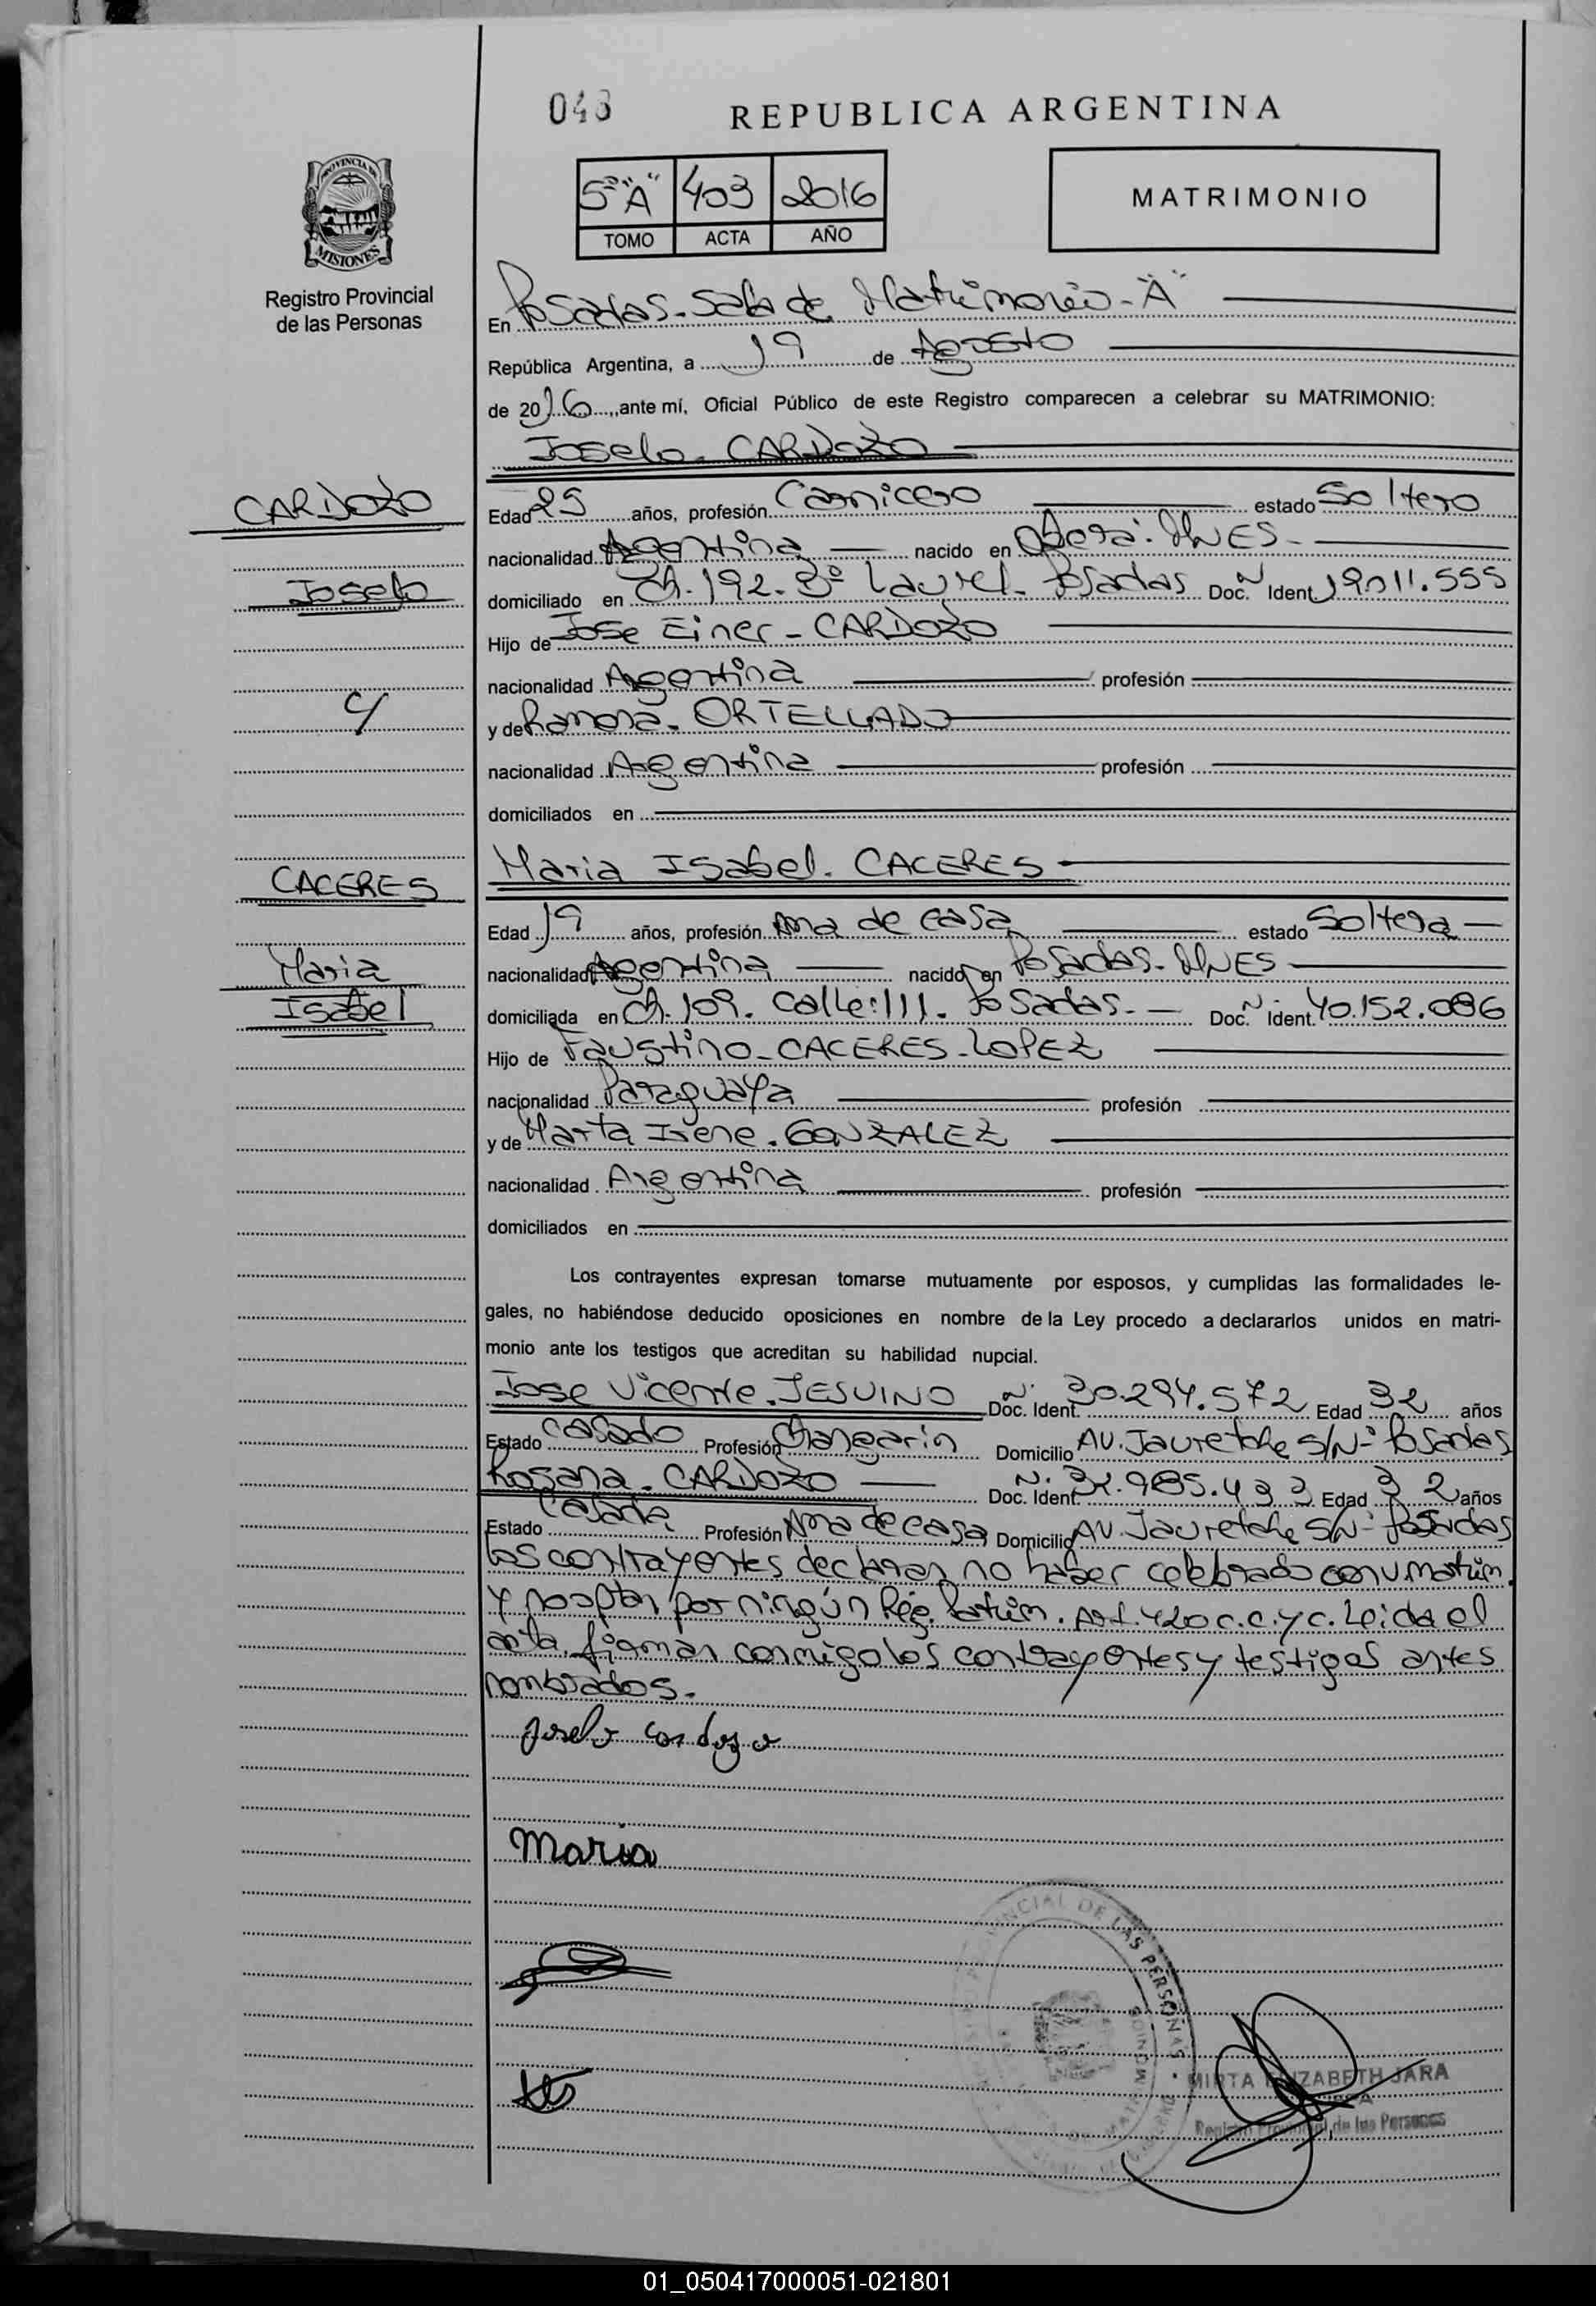 043
REPUBLICA ARGENTINA
5º "A" 403 2016
TOMO ACTA AÑO
MATRIMONIO
PROVINCIA DE
MISIONES
Registro Provincial
de las Personas
En Posadas - Sala de Matrimonio - "A"
República Argentina, a 19 de Agosto
de 2016, ante mí, Oficial Público de este Registro comparecen a celebrar su MATRIMONIO:
Joselo - CARDOZO
CARDOZO
Joselo
y
CACERES
Maria
Isabel
Edad 25 años, profesión Carnicero estado Soltero
nacionalidad Argentina nacido en Obera: MNES -
domiciliado en Ch. 192 - Bº Laurel - Posadas Doc. Nº Ident 19011.555
Hijo de Jose Einer - CARDOZO
nacionalidad Argentina profesión
y de Ramona - ORTELLADO
nacionalidad Argentina profesión
domiciliados en
Maria Isabel - CACERES
Edad 19 años, profesión Ama de casa estado Soltera
nacionalidad Argentina nacido en Posadas - MNES
domiciliada en Ch. 109. Calle: 111. Posadas. - Doc. Nº Ident. 40.152.086
Hijo de Faustino - CACERES - LOPEZ
nacionalidad Paraguaya profesión
y de Marta Irene - GONZALEZ
nacionalidad Argentina profesión
domiciliados en
Los contrayentes expresan tomarse mutuamente por esposos, y cumplidas las formalidades le-
gales, no habiéndose deducido oposiciones en nombre de la Ley procedo a declararlos unidos en matri-
monio ante los testigos que acreditan su habilidad nupcial.
Jose Vicente - JESUINO Doc. Ident. N. 30.294.572 Edad 32 años
Estado Casado Profesión Changarin Domicilio AV. Jauretche S/Nº Posadas
Rosana - CARDOZO Doc. Ident. N. 985.433 Edad 32 años
Estado Casada Profesión Ama de casa Domicilio AV. Jauretche S/Nº Posadas
Los contrayentes declaran no haber celebrado conv. matrim.
y no optan por ningún Rég. Patrim. Art. 420 C.C. y C. Leida el
acta, firman conmigo los contrayentes y testigos antes
nombrados.
Joselo Cardozo
Maria
PROVINCIAL DE LAS PERSONAS
MIRTA ELIZABETH JARA
Registro Provincial de las Personas
01_050417000051-021801